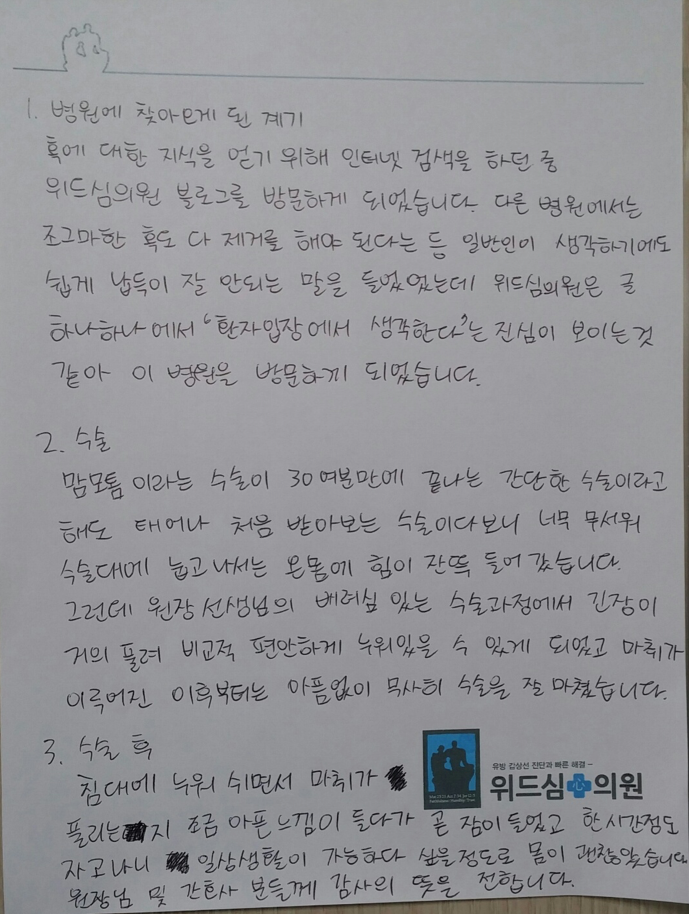 1. 병원에 찾아오게 된 계기
혹에 대한 지식을 얻기 위해 인터넷 검색을 하던 중
위드심의원 블로그를 방문하게 되었습니다. 다른 병원에서는
조그마한 혹도 다 제거를 해야 된다는 등 일반인이 생각하기에도
쉽게 납득이 잘 안되는 말을 들었었는데 위드심의원은 글
하나하나에서 '환자입장에서 생각한다'는 진심이 보이는것
같아 이 병원을 방문하게 되었습니다.
2. 수술
맘모톰이라는 수술이 30여분만에 끝나는 간단한 수술이라고
해도 태어나 처음 받아보는 수술이다보니 너무 무서워
수술대에 눕고나서는 온몸에 힘이 잔뜩 들어갔습니다.
그런데 원장선생님의 배려심 있는 수술과정에서 긴장이
거의 풀려 비교적 편안하게 누워있을 수 있게 되었고 마취가
이루어진 이후부터는 아픔없이 무사히 수술을 잘 마쳤습니다.
3. 수술 후
유방 갑상선 진단과 빠른 해결 -
위드심 心 의원
침대에 누워 쉬면서 마취가
풀리는지 조금 아픈느낌이 들다가 곧 잠이들었고 한시간정도
자고나니 일상생활이 가능하다 싶을정도로 몸이 괜찮았습니다
원장님 및 간호사 분들께 감사의 뜻을 전합니다.